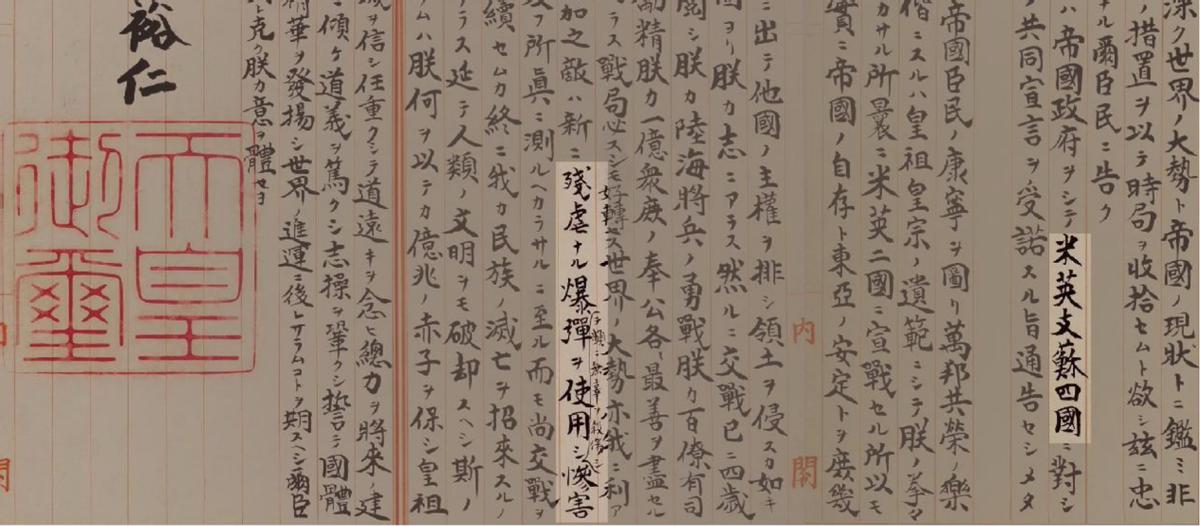 深ク世界ノ大勢ト帝國ノ現狀トニ鑑ミ非
ノ措置ヲ以テ時局ヲ收拾セムト欲シ茲ニ忠
ナル爾臣民ニ告ク
ハ帝國政府ヲシテ米英支蘇四國ニ對シ
ノ共同宣言ヲ受諾スル旨通告セシメタ
帝國臣民ノ康寧ヲ圖リ萬邦共榮ノ樂
偕ニスルハ皇祖皇宗ノ遺範ニシテ朕ノ拳々
カサル所曩ニ米英二國ニ宣戰セル所以モ
實ニ帝國ノ自存ト東亞ノ安定トヲ庶幾
內閣
ニ出テ他國ノ主權ヲ排シ領土ヲ侵スカ如キ
固ヨリ朕カ志ニアラス然ルニ交戰已ニ四歲
閱シ朕カ陸海將兵ノ勇戰朕カ百僚有司
勵精朕カ一億衆庶ノ奉公各〻最善ヲ盡セル
ラス戰局必スシモ好轉セス世界ノ大勢亦我ニ利ア
加之敵ハ新ニ殘虐ナル爆彈ヲ使用シ頻ニ無辜ヲ殺傷シ慘害
及フ所眞ニ測ルヘカラサルニ至ル而モ尚交戰ヲ
續セムカ終ニ我カ民族ノ滅亡ヲ招來スルノ
ラス延テ人類ノ文明ヲモ破却スヘシ斯ノ
ムハ朕何ヲ以テカ億兆ノ赤子ヲ保シ皇祖
ヲ信シ任重クシテ道遠キヲ念ヒ總力ヲ將來ノ建
傾ケ道義ヲ篤クシ志操ヲ鞏クシ誓テ國體
精華ヲ發揚シ世界ノ進運ニ後レサラムコトヲ期スヘシ爾臣
克ク朕カ意ヲ體セヨ
裕仁
天皇
御璽